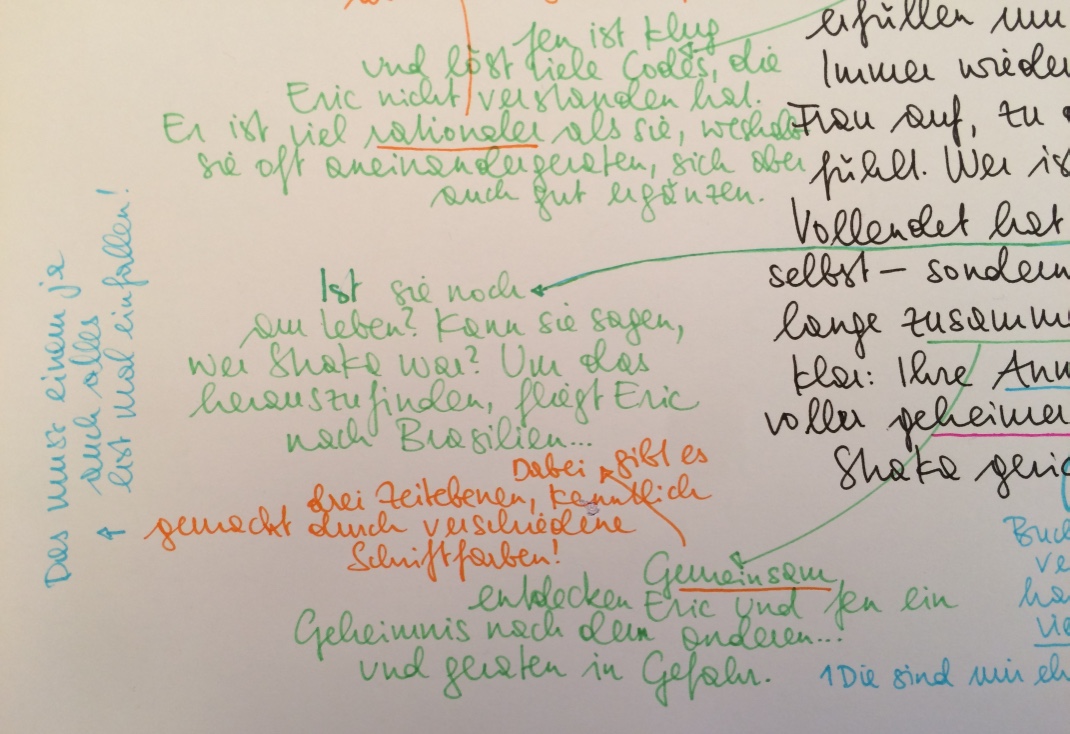 Jen ist klug
und löst viele Codes, die
Eric nicht verstanden hat.
Er ist viel rationaler als sie, weshalb
sie oft aneinandergeraten, sich aber
auch gut ergänzen.
Ist sie noch
am Leben? Kann sie sagen,
wer Shaka war? Um das
herauszufinden, fliegt Eric
nach Brasilien...
Dabei gibt es
drei Zeitebenen, kenntlich
gemacht durch verschiedene
Schriftfarben!
Gemeinsam
entdecken Eric und Jen ein
Geheimnis nach dem anderen...
und geraten in Gefahr.
Das muss einem ja
auch alles
erst mal einfallen!
erfüllen
Immer wieder
Frau auf, zu
fühlt. Wer
Vollendet hat
selbst – sondern
lange
klar: Ihre
voller geheimer
Shaka
1 Die sind mir